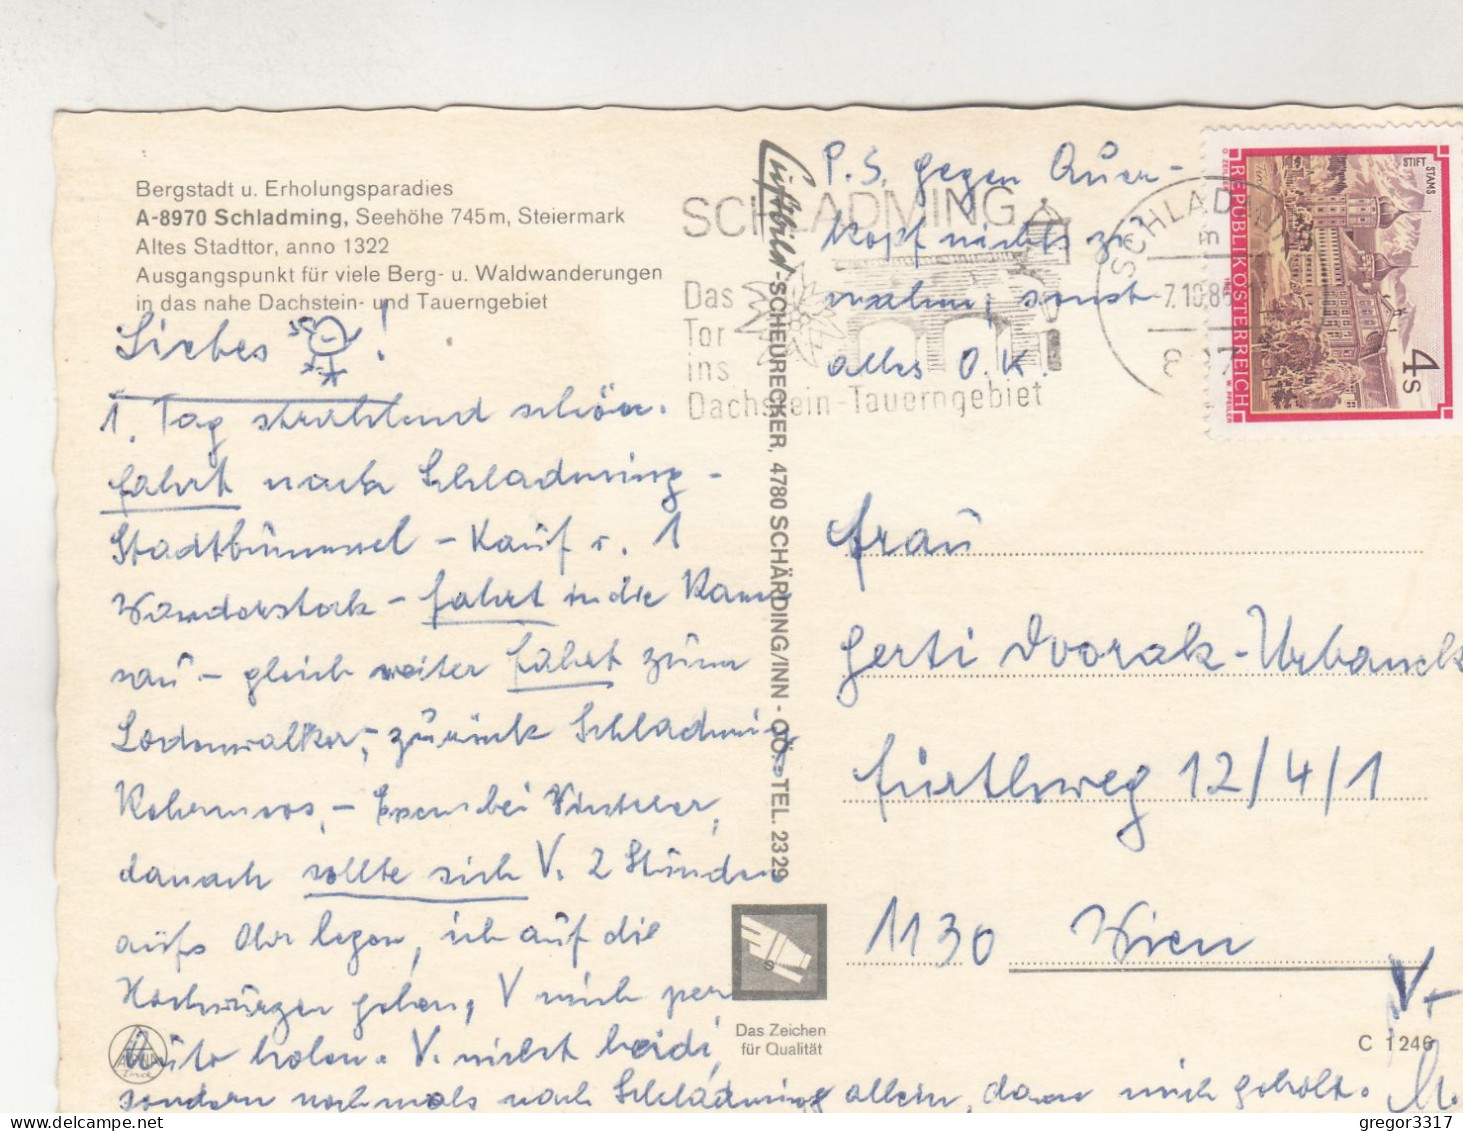 Bergstadt u. Erholungsparadies
A-8970 Schladming, Seehöhe 745m, Steiermark
Altes Stadttor, anno 1322
Ausgangspunkt für viele Berg- u. Waldwanderungen
in das nahe Dachstein- und Tauerngebiet
Liebes !
1. Tag strahlend schön.
fahrt nach Schladming -
Stadtbummel - Kauf v. 1
Wanderstock - fahrt in die Ram
sau - gleich weiter fahrt zum
Lodenwalker, zurück Schladming
Rohrmoos, - Essen bei
danach sollte sich V. 2 Stunden
aufs Ohr legen, ich auf die
Hochwurzen gehen, V mich per
Auto holen. V. nicht
sondern nochmals nach Schladming allein, dann mich geholt. M.
Luftbild-SCHEURECKER, 4780 SCHÄRDING/INN - OÖ. - TEL. 2329
P.S. gegen Quer-
kopf nichts zu
machen, sonst
alles O.K.
SCHLADMING
Das
Tor
ins
Dachstein-Tauerngebiet
SCHLADMING
7.10.86
STIFT
STAMS
REPUBLIK ÖSTERREICH
4s
O. ZEILER
W. PFEILER
Frau
Gerti Dvorak-Urbanek
Fürthweg 12/4/1
1130 Wien
V+
Das Zeichen
für Qualität
C 1246
gregor3317